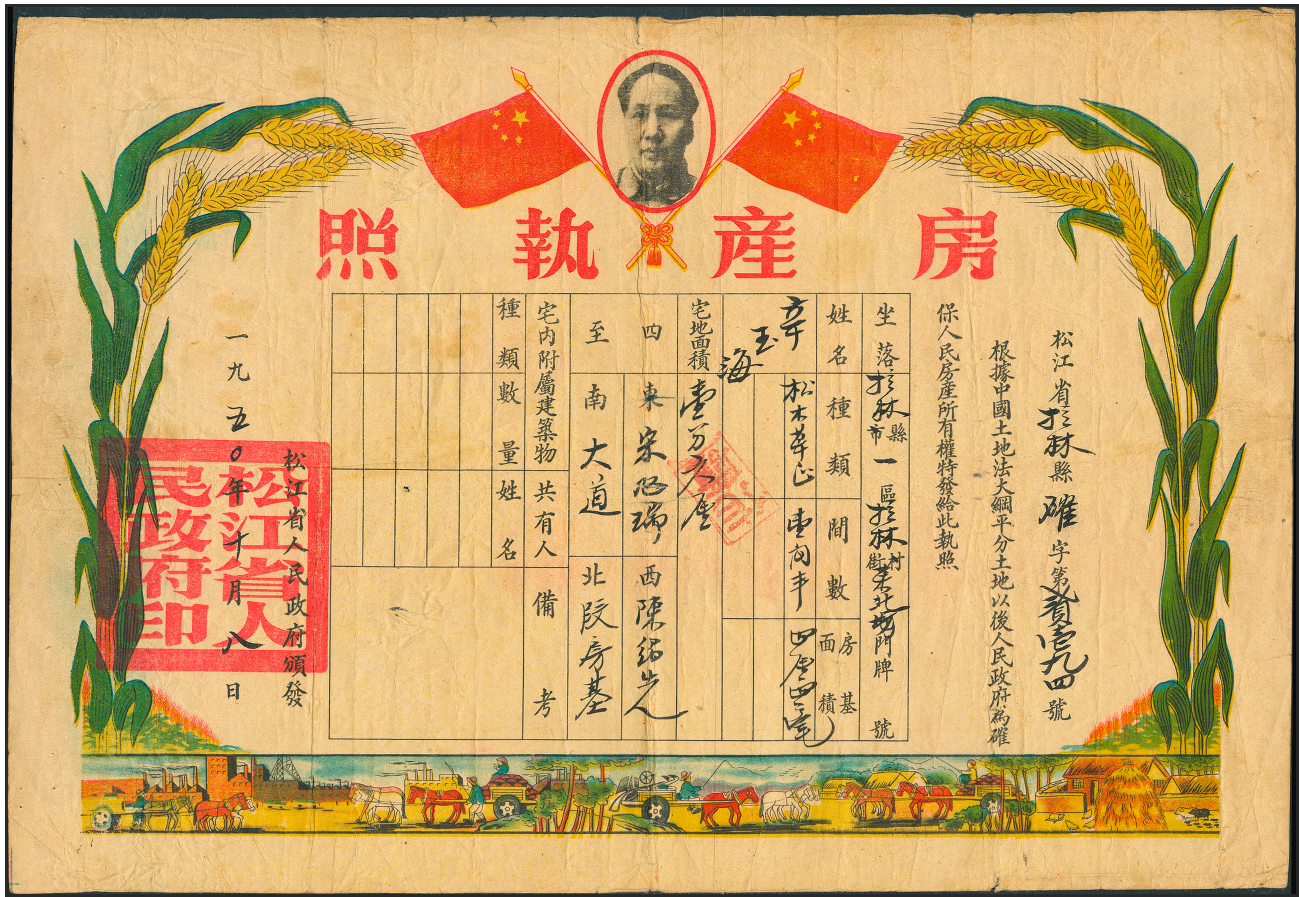 房產執照
松江省 林縣 確字第貳壹九四號
根據中國土地法大綱平分土地以後人民政府為確
保人民房產所有權特發給此執照
坐落 林縣市 一區 林村街 北 門牌 號
姓名 種類 間數 房基面積
玉海 松木草正 壹間半
宅地面積 壹
四至
東 宋 瑞 西 陳
南 大道 北 段房基
宅內附屬建築物 共有人 備考
種類 數量 姓名
松江省人民政府頒發
一九五0年十月八日
松江省人民政府印